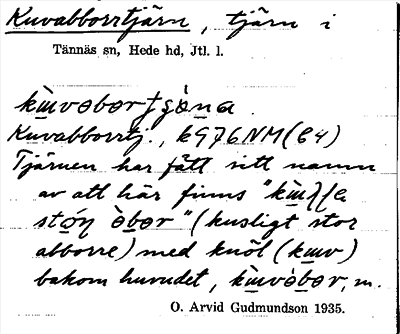 Kuvabborrtjärn, tjärn i
Tännäs sn, Hede hd, Jtl. l.
Kuvabborrtj., k976NM(64)
Tjärnen har fått sitt namn
av att här finns "
" (kusligt stor
abborre) med knöl (kɯv)
bakom huvudet, m.
O. Arvid Gudmundson 1935.